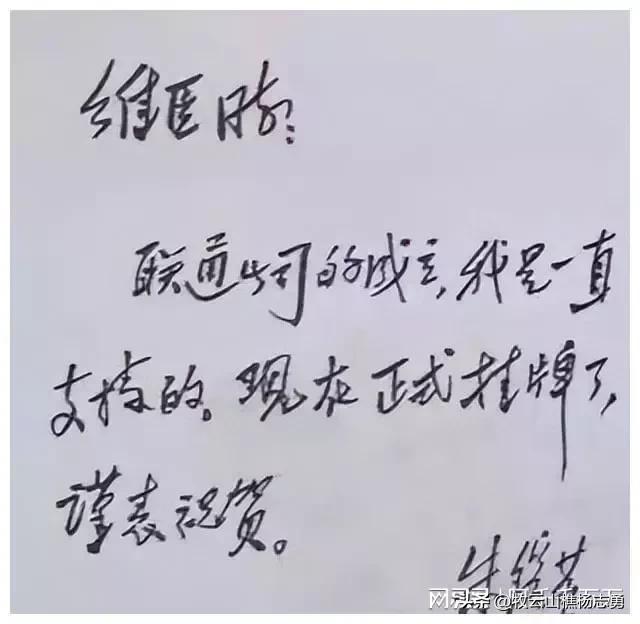 维臣同志：
联通公司的成立，我是一直
支持的。现在正式挂牌了，
谨表祝贺。
朱镕基
头条 @牧云山樵杨志勇